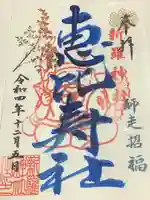 奉拝
新羅神社
師走招福
恵比寿社
令和四年十二月五日